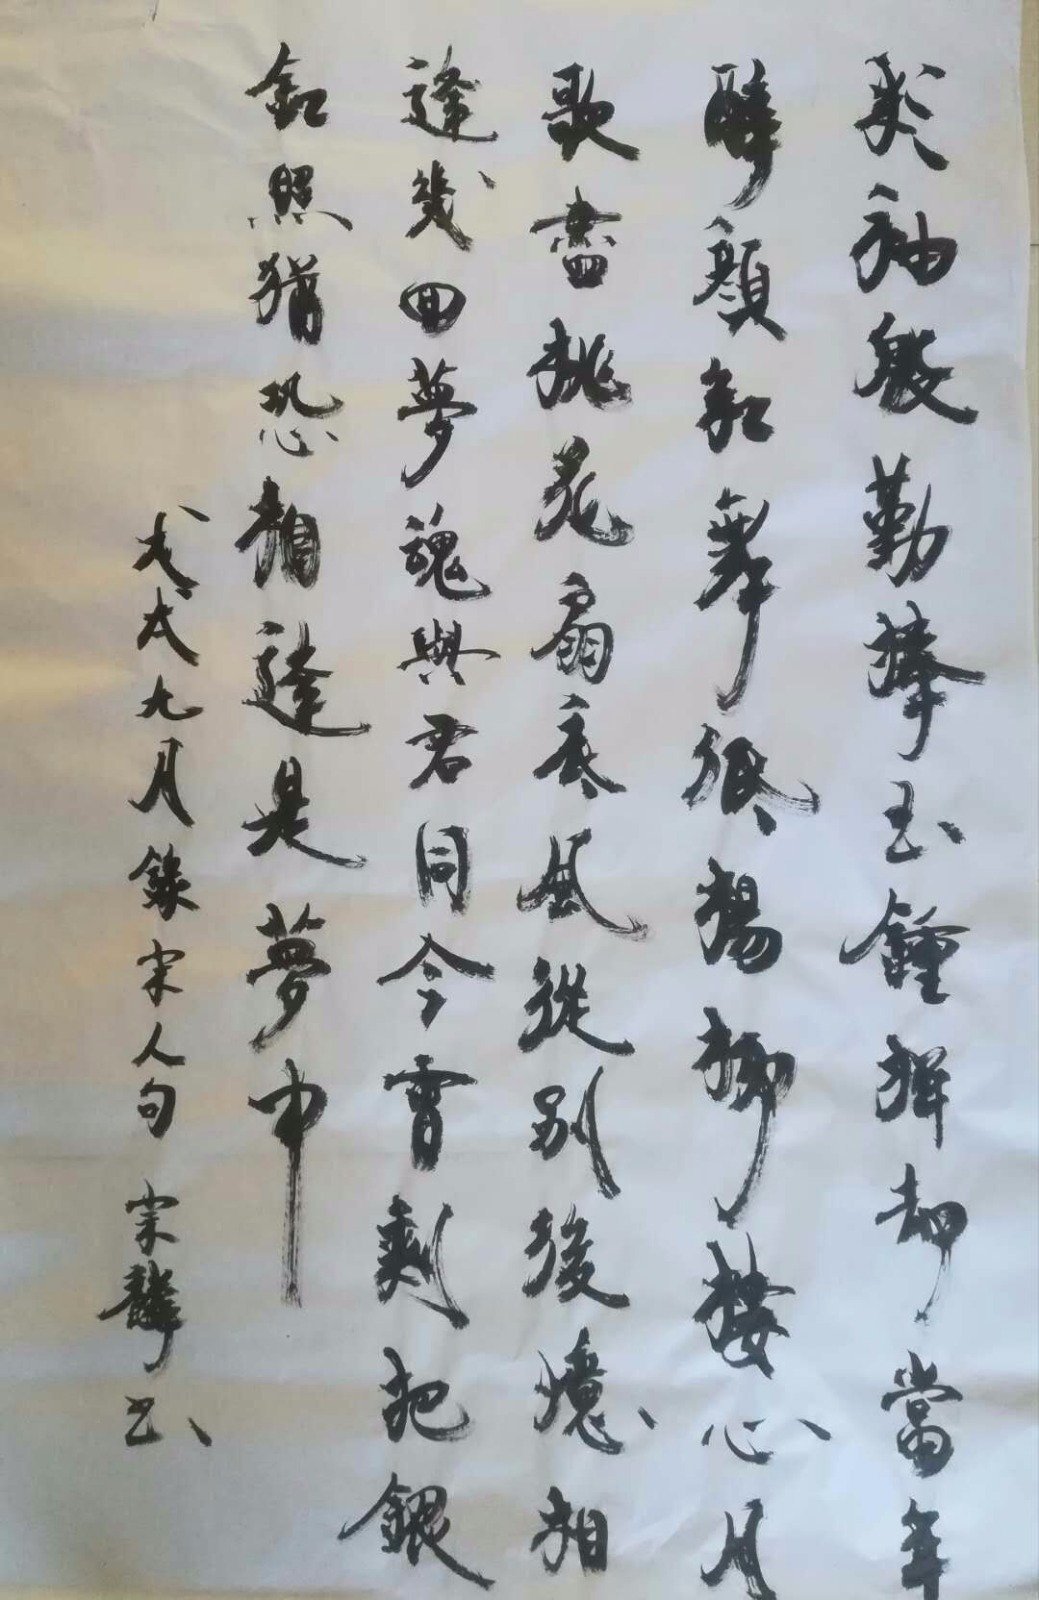 彩袖殷勤捧玉鍾拚却當年
醉顏紅舞低楊柳樓心月
歌盡桃花扇底風從別後憶相
逢幾回夢魂與君同今宵剩把銀
釭照猶恐相逢是夢中
戊戌九月錄宋人句 宗麟书